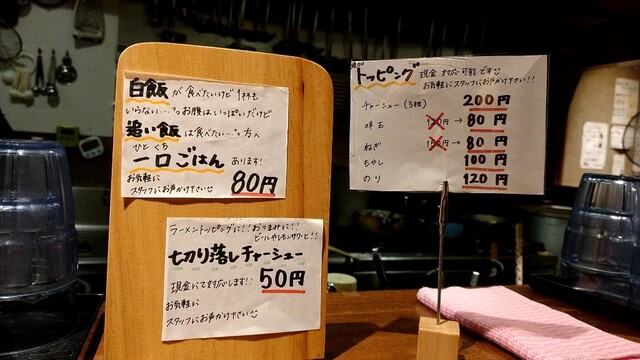 白飯が食べたいけど1杯も
いらない…でもお腹はいっぱいだけど
追い飯は食べたい…って方へ
ひとくち
一口ごはん あります!
お気軽に
スタッフにお声がけ下さい 80円
ラーメントッピングに!!おつまみに!!
ビールやレモンサワーと!!
切り落しチャーシュー
現金にて対応します!! 50円
お気軽に
スタッフにお声がけ下さい
追加トッピング 現金対応可能です
お気軽にスタッフにお声がけ下さい!!
チャーシュー(3枚) 200円
味玉 → 80円
ねぎ → 80円
もやし 100円
のり 120円